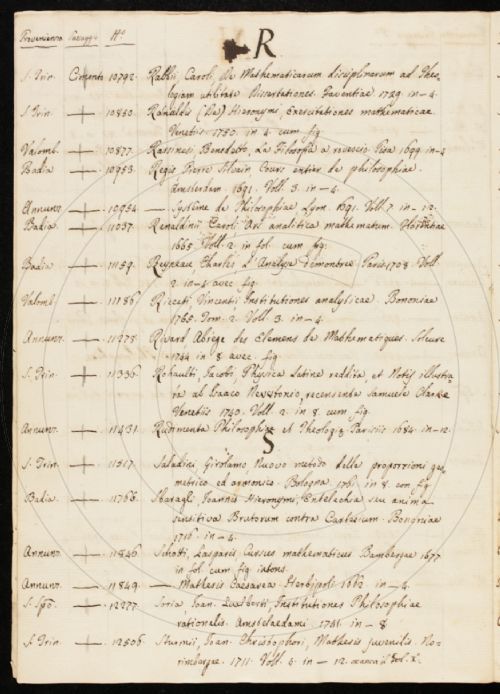 R
Provenienza Passaggio N.º
S. Trin. Cimento 10792. Rabbii, Caroli, de Mathematicarum disciplinarum ad Theo-
logiam utilitate Dissertationes. Faventiae. 1729. in-4.
S. Trin. 10850. Rainaldis (De) Hieronymi, Exercitationes mathematicae
Venetiis. 1750. in 4. cum fig
Valomb. 10877. Benedetto, La Filosofia a rovescio. Pisa 1699. in-4
Badia 10953. Regis Pierre Silvain, Cours entier de philosophiae.
Amsterdam. 1691. Voll. 3. in-4.
Annunz. 10954. — Système de Philosophiae Lyon. 1691. Voll. 7. in-12.
Badia 11037. Renaldinii Caroli, Ars analitica mathematum. Florentiae
1665. Voll. 2. in fol. cum fig.
Badia 11159. Reyneau, Charles L'Analyse démontrée. Paris 1708. Voll.
2. in-4 avec fig.
Valomb. 11186. Riccati, Vincentii Institutiones analyticae. Bononiae
1765. Tom. 2. Voll. 3. in-4.
Annunz. 11278. Rivard Abrégé des Elemens de Mathematiques.
1744 in 8. avec fig.
S. Trin. 11336. Rohaulti, Jacobi, Physica Latine reddita, et Notis illustra-
ta ab Isaaco Newstonio, recensente Samuele Clarke
Venetiis 1740. Voll. 2. in 8. cum fig.
Annunz. 11431. Rudimenta Philosophiæ et Theologiæ Parisiis 1684. in-12.
S
S. Trin. 11517. Saladini, Girolamo, Nuovo metodo delle proporzioni geo-
metrico ed armonico. Bologna. 1761. in 8. con fig.
Badia 11766. Sbaragli Joannis Hieronymi, Entelechia seu anima
sensitiva Brutorum contra Cartesium. Bononiae
1716. in-4.
Annunz. 11846. Schotti, Gasparis, Cursus mathematicus Bambergae 1677
in fol. cum fig.
Annunz. 11849. — Mathesis Caesarea. Herbipoli 1662 in-4.
S. Spo. 12277. Soria, Joan. Institutiones Philosophiae
rationalis. Amstelaedami. 1741. in-8
S. Trin. 12506. Sturmii, Joan. Christophori, Mathesis juvenilis. No-
rimbergae. 1711. Voll. in-12.